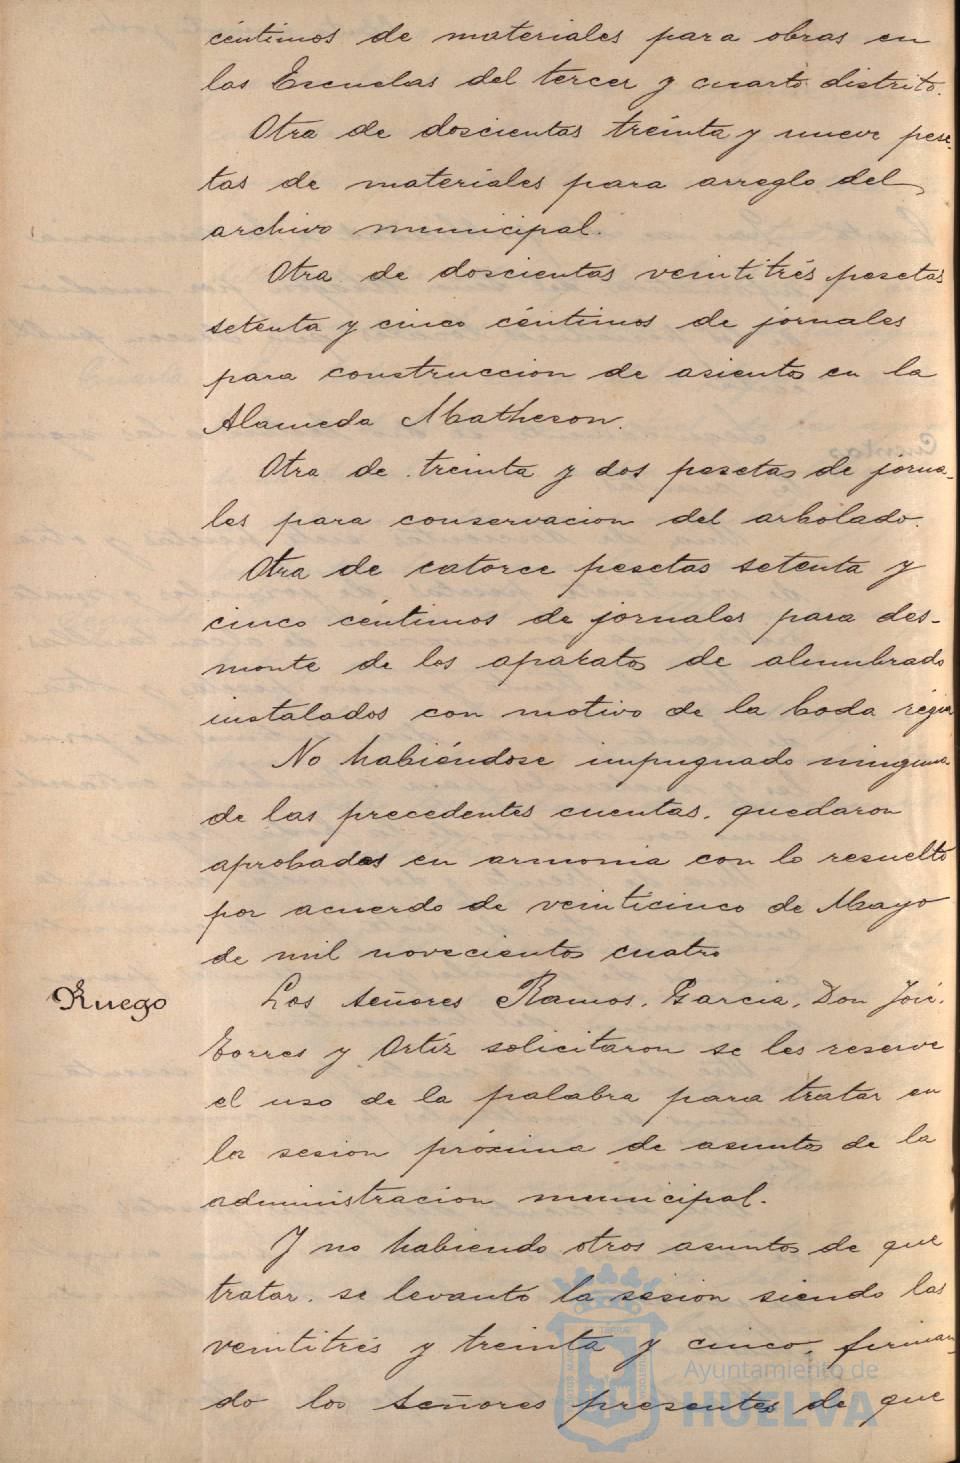 céntimos de materiales para obras en
las Escuelas del tercer y cuarto distrito.
Otra de doscientas treinta y nueve pese-
tas de materiales para arreglo del
archivo municipal.
Otra de doscientas veintitrés pesetas
setenta y cinco céntimos de jornales
para construccion de asientos en la
Alameda Matheson.
Otra de treinta y dos pesetas de jorna-
les para conservacion del arbolado.
Otra de catorce pesetas setenta y
cinco céntimos de jornales para des-
monte de los aparatos de alumbrado
instalados con motivo de la boda régia
No habiéndose impugnado ninguna
de las precedentes cuentas, quedaron
aprobadas en armonia con lo resuelto
por acuerdo de veinticinco de Mayo
de mil novecientos cuatro
Ruego
Los señores Ramos, Garcia, Don José,
Torres y Ortíz solicitaron se les reserve
el uso de la palabra para tratar en
la sesion próxima de asuntos de la
administracion municipal.
Y no habiendo otros asuntos de que
tratar, se levantó la sesion siendo las
veintitrés y treinta y cinco, firman-
do los señores presentes de que
Ayuntamiento de
HUELVA